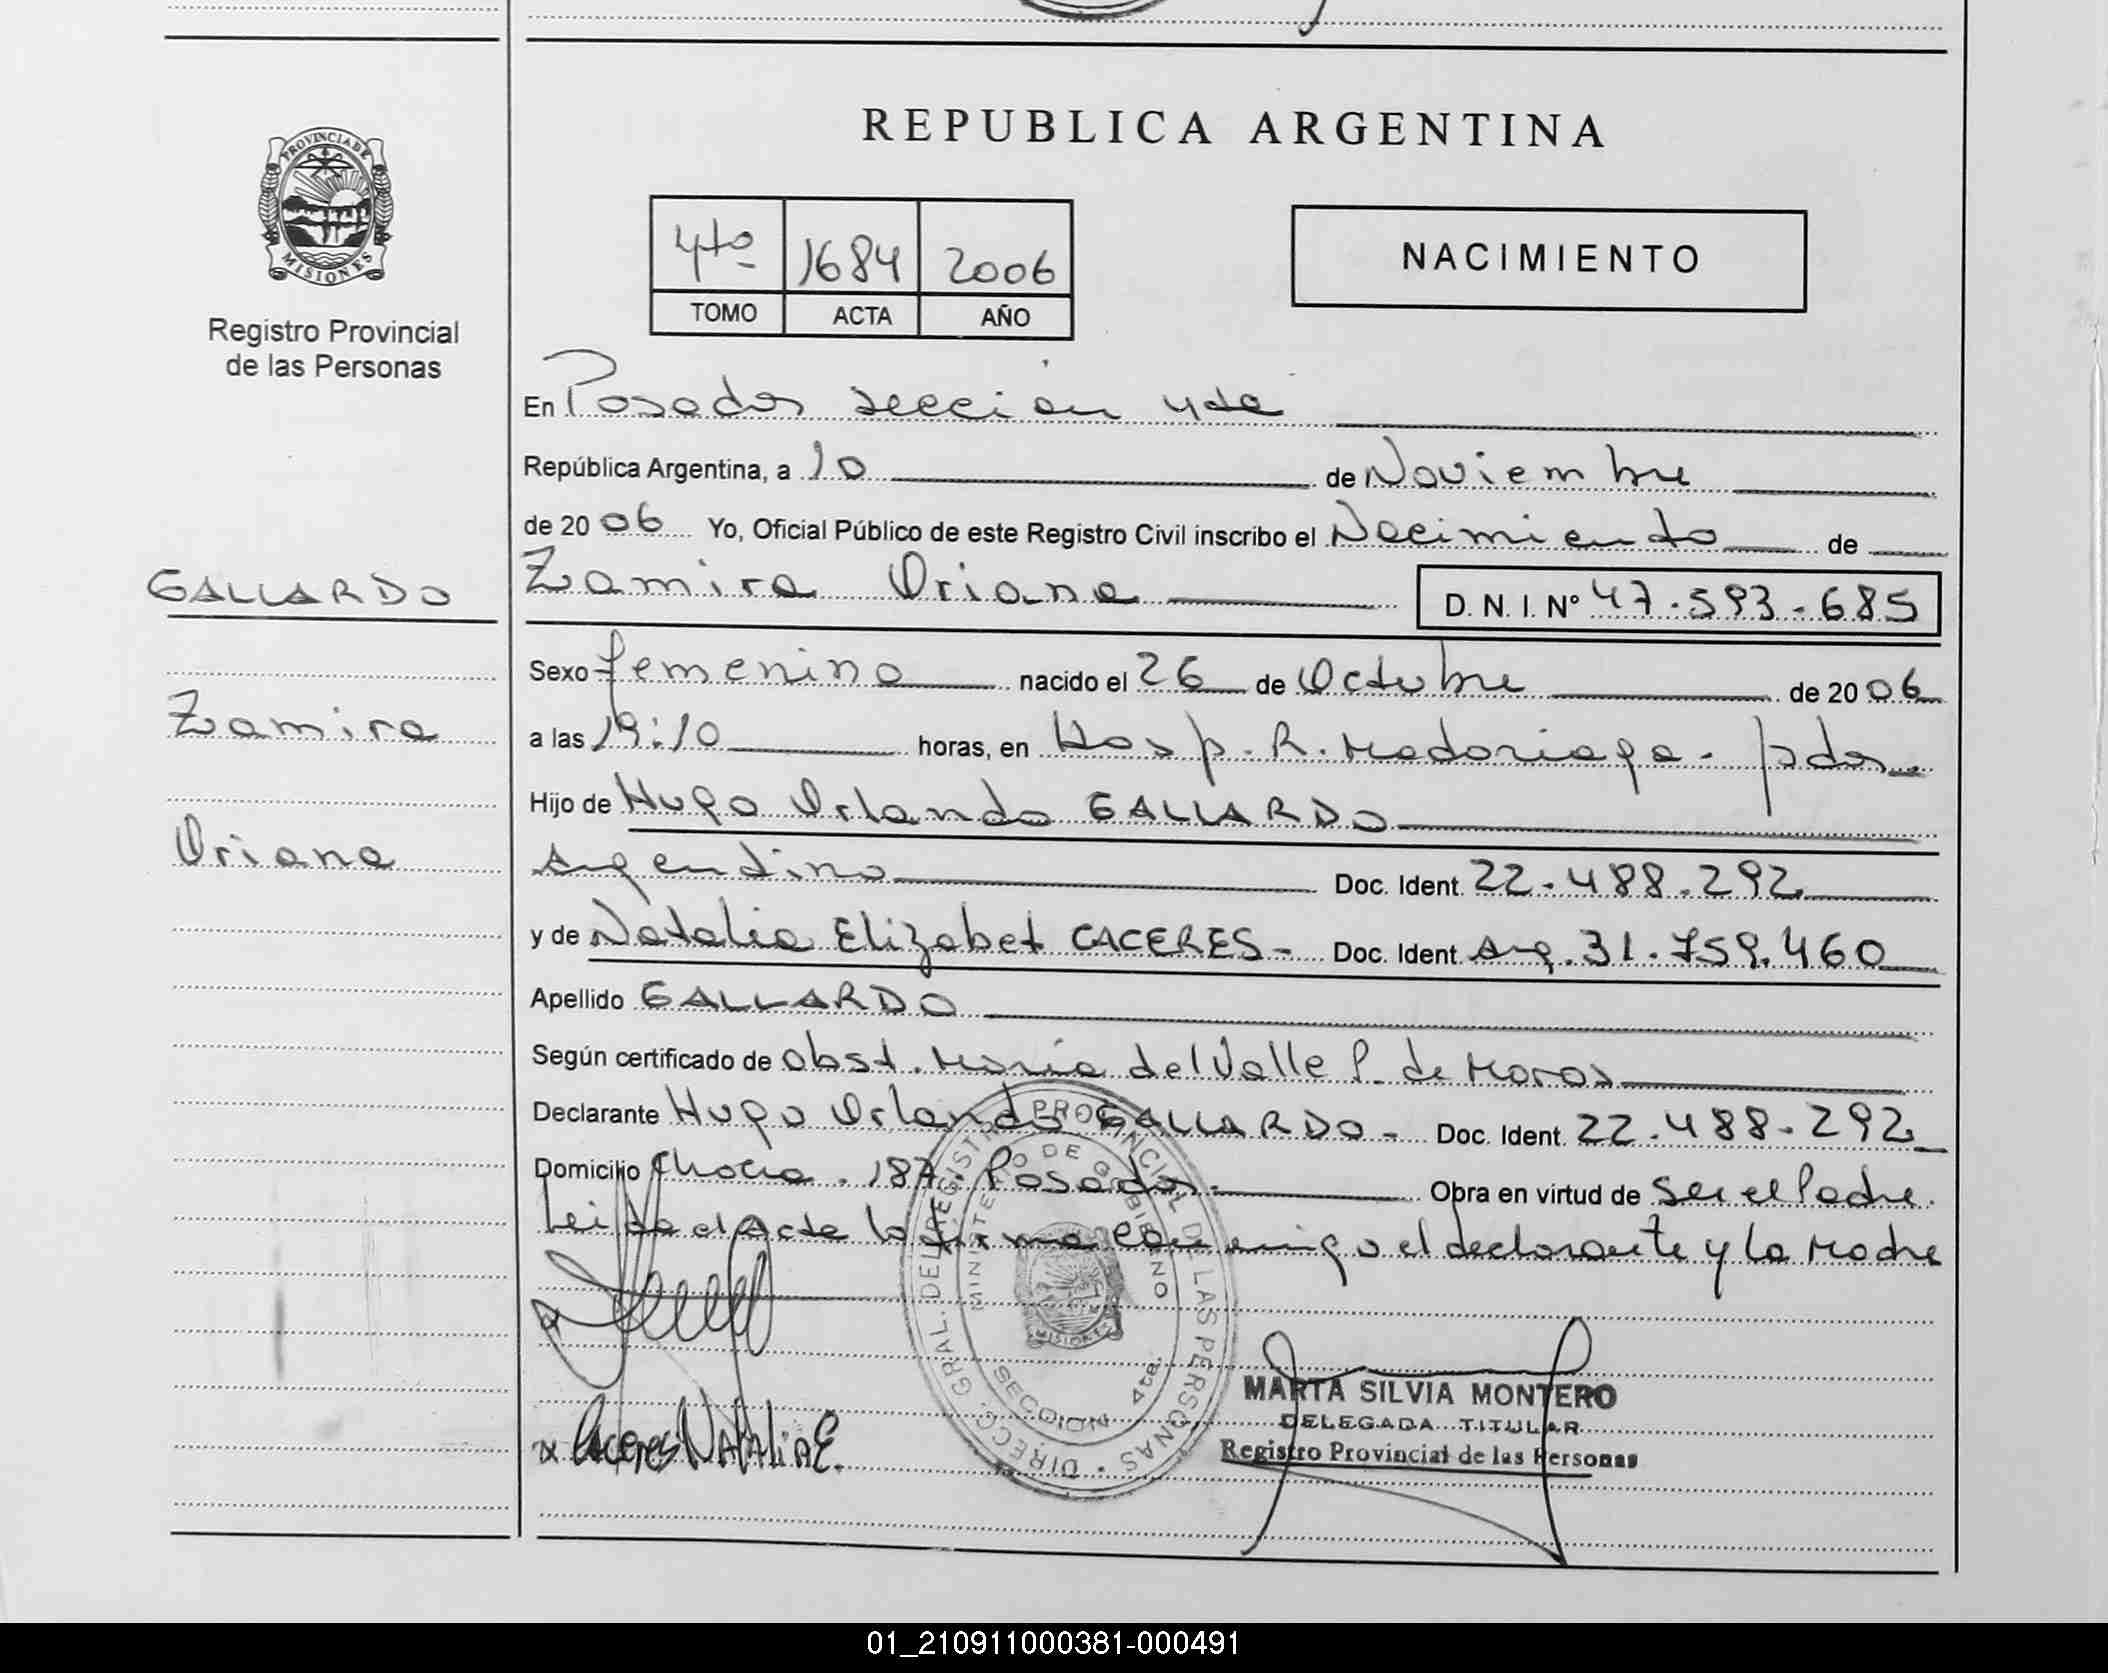 REPUBLICA ARGENTINA
PROVINCIA DE
MISIONES
Registro Provincial
de las Personas
4to 1684 2006
TOMO ACTA AÑO
NACIMIENTO
En Posadas sección 4ta
República Argentina, a 10 de Noviembre
de 2006 Yo, Oficial Público de este Registro Civil inscribo el Nacimiento de
GALLARDO
Zamira
Oriana
Zamira Oriana D. N. I. Nº 47.593.685
Sexo femenino nacido el 26 de Octubre de 2006
a las 19:10 horas, en Hosp. R. Madariaga - pdas
Hijo de Hugo Orlando GALLARDO
Argentino Doc. Ident. 22.488.292
y de Natalia Elizabet CACERES - Doc. Ident. Arg. 31.759.460
Apellido GALLARDO
Según certificado de obst. María del Valle P. de
Declarante Hugo Orlando GALLARDO - Doc. Ident. 22.488.292
Domicilio 187. Posadas - Obra en virtud de ser el Padre.
Leida el Acta la firma conmigo el declarante y la Madre
DIRECC. GRAL. DEL REGISTRO PROVINCIAL DE LAS PERSONAS
MINISTERIO DE GOBIERNO
MISIONES
SECCION 4ta.
x
x Caceres Natalia E.
MARTA SILVIA MONTERO
DELEGADA TITULAR
Registro Provincial de las Personas
01_210911000381-000491